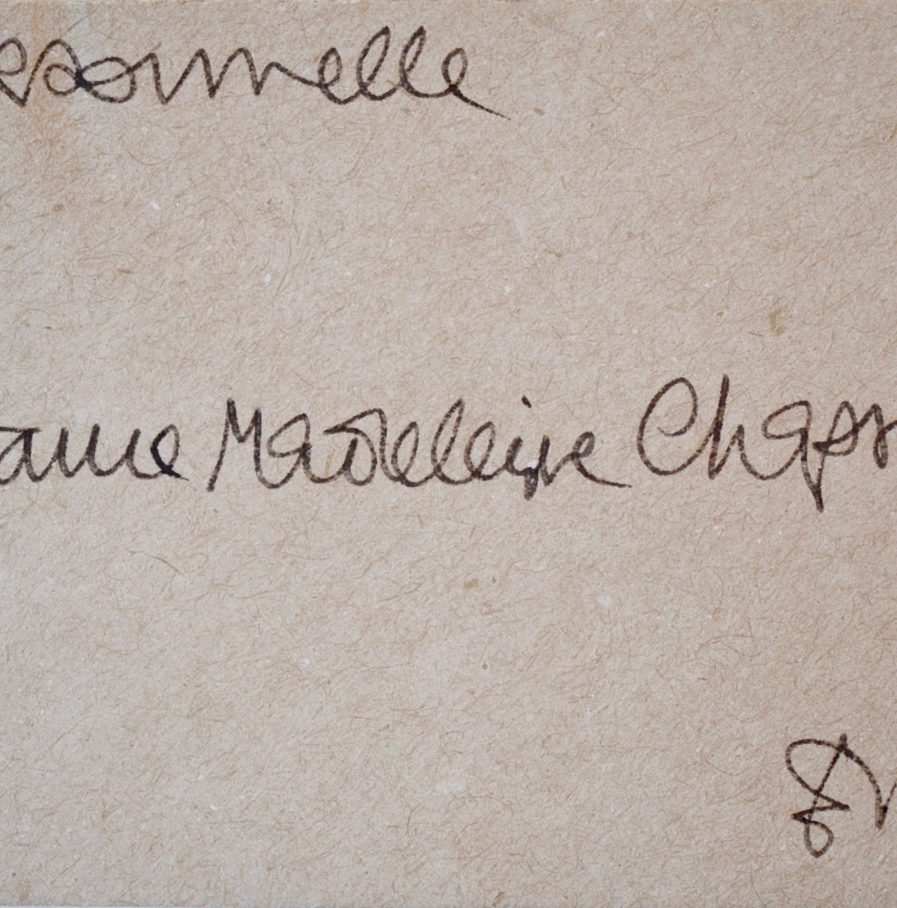 ersonnelle
ame Madeleine Chaps